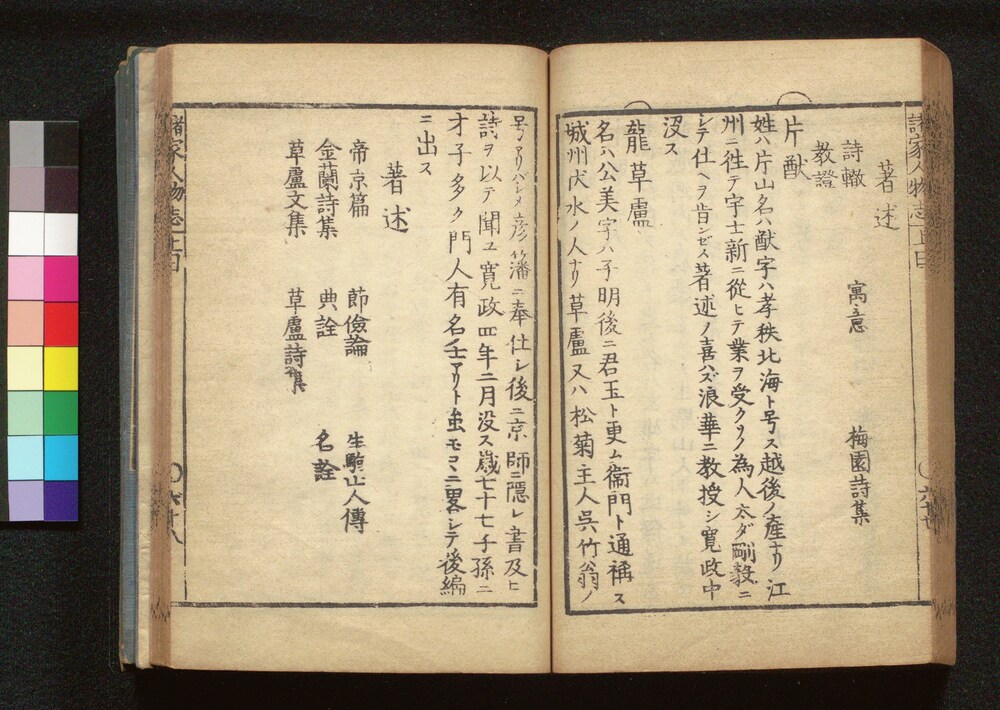 著述
詩轍
寓意
梅園詩集
教證
片猷
姓ハ片山名ハ猷字ハ孝秩北海ト号ス越後ノ産ナリ江
州ニ徃テ宇士新ニ從ヒテ業ヲ受クソノ為人太ダ剛毅ニ
シテ仕ヘヲ肯ンゼス著述ノ喜ハズ浪華ニ教授シ寛政中
沒ス
龍草盧
名ハ公美字ハ子明後ニ君玉ト更ム衞門ト通稱ス
城州伏水ノ人ナリ草盧又ハ松菊主人呉竹翁ノ
号アリハシメ彦藩ニ奉仕シ後ニ京師ニ隠レ書及ヒ
詩ヲ以テ聞ユ寛政四年二月没ス歳七十七子孫ニ
才子多ク門人有名ノ士アリト虽モコヽニ畧シテ後編
ニ出ス
著述
帝京篇
節儉論
生駒山人傳
金蘭詩集
典詮
名詮
草盧文集
草盧詩集
諸家人物志 上
六十八